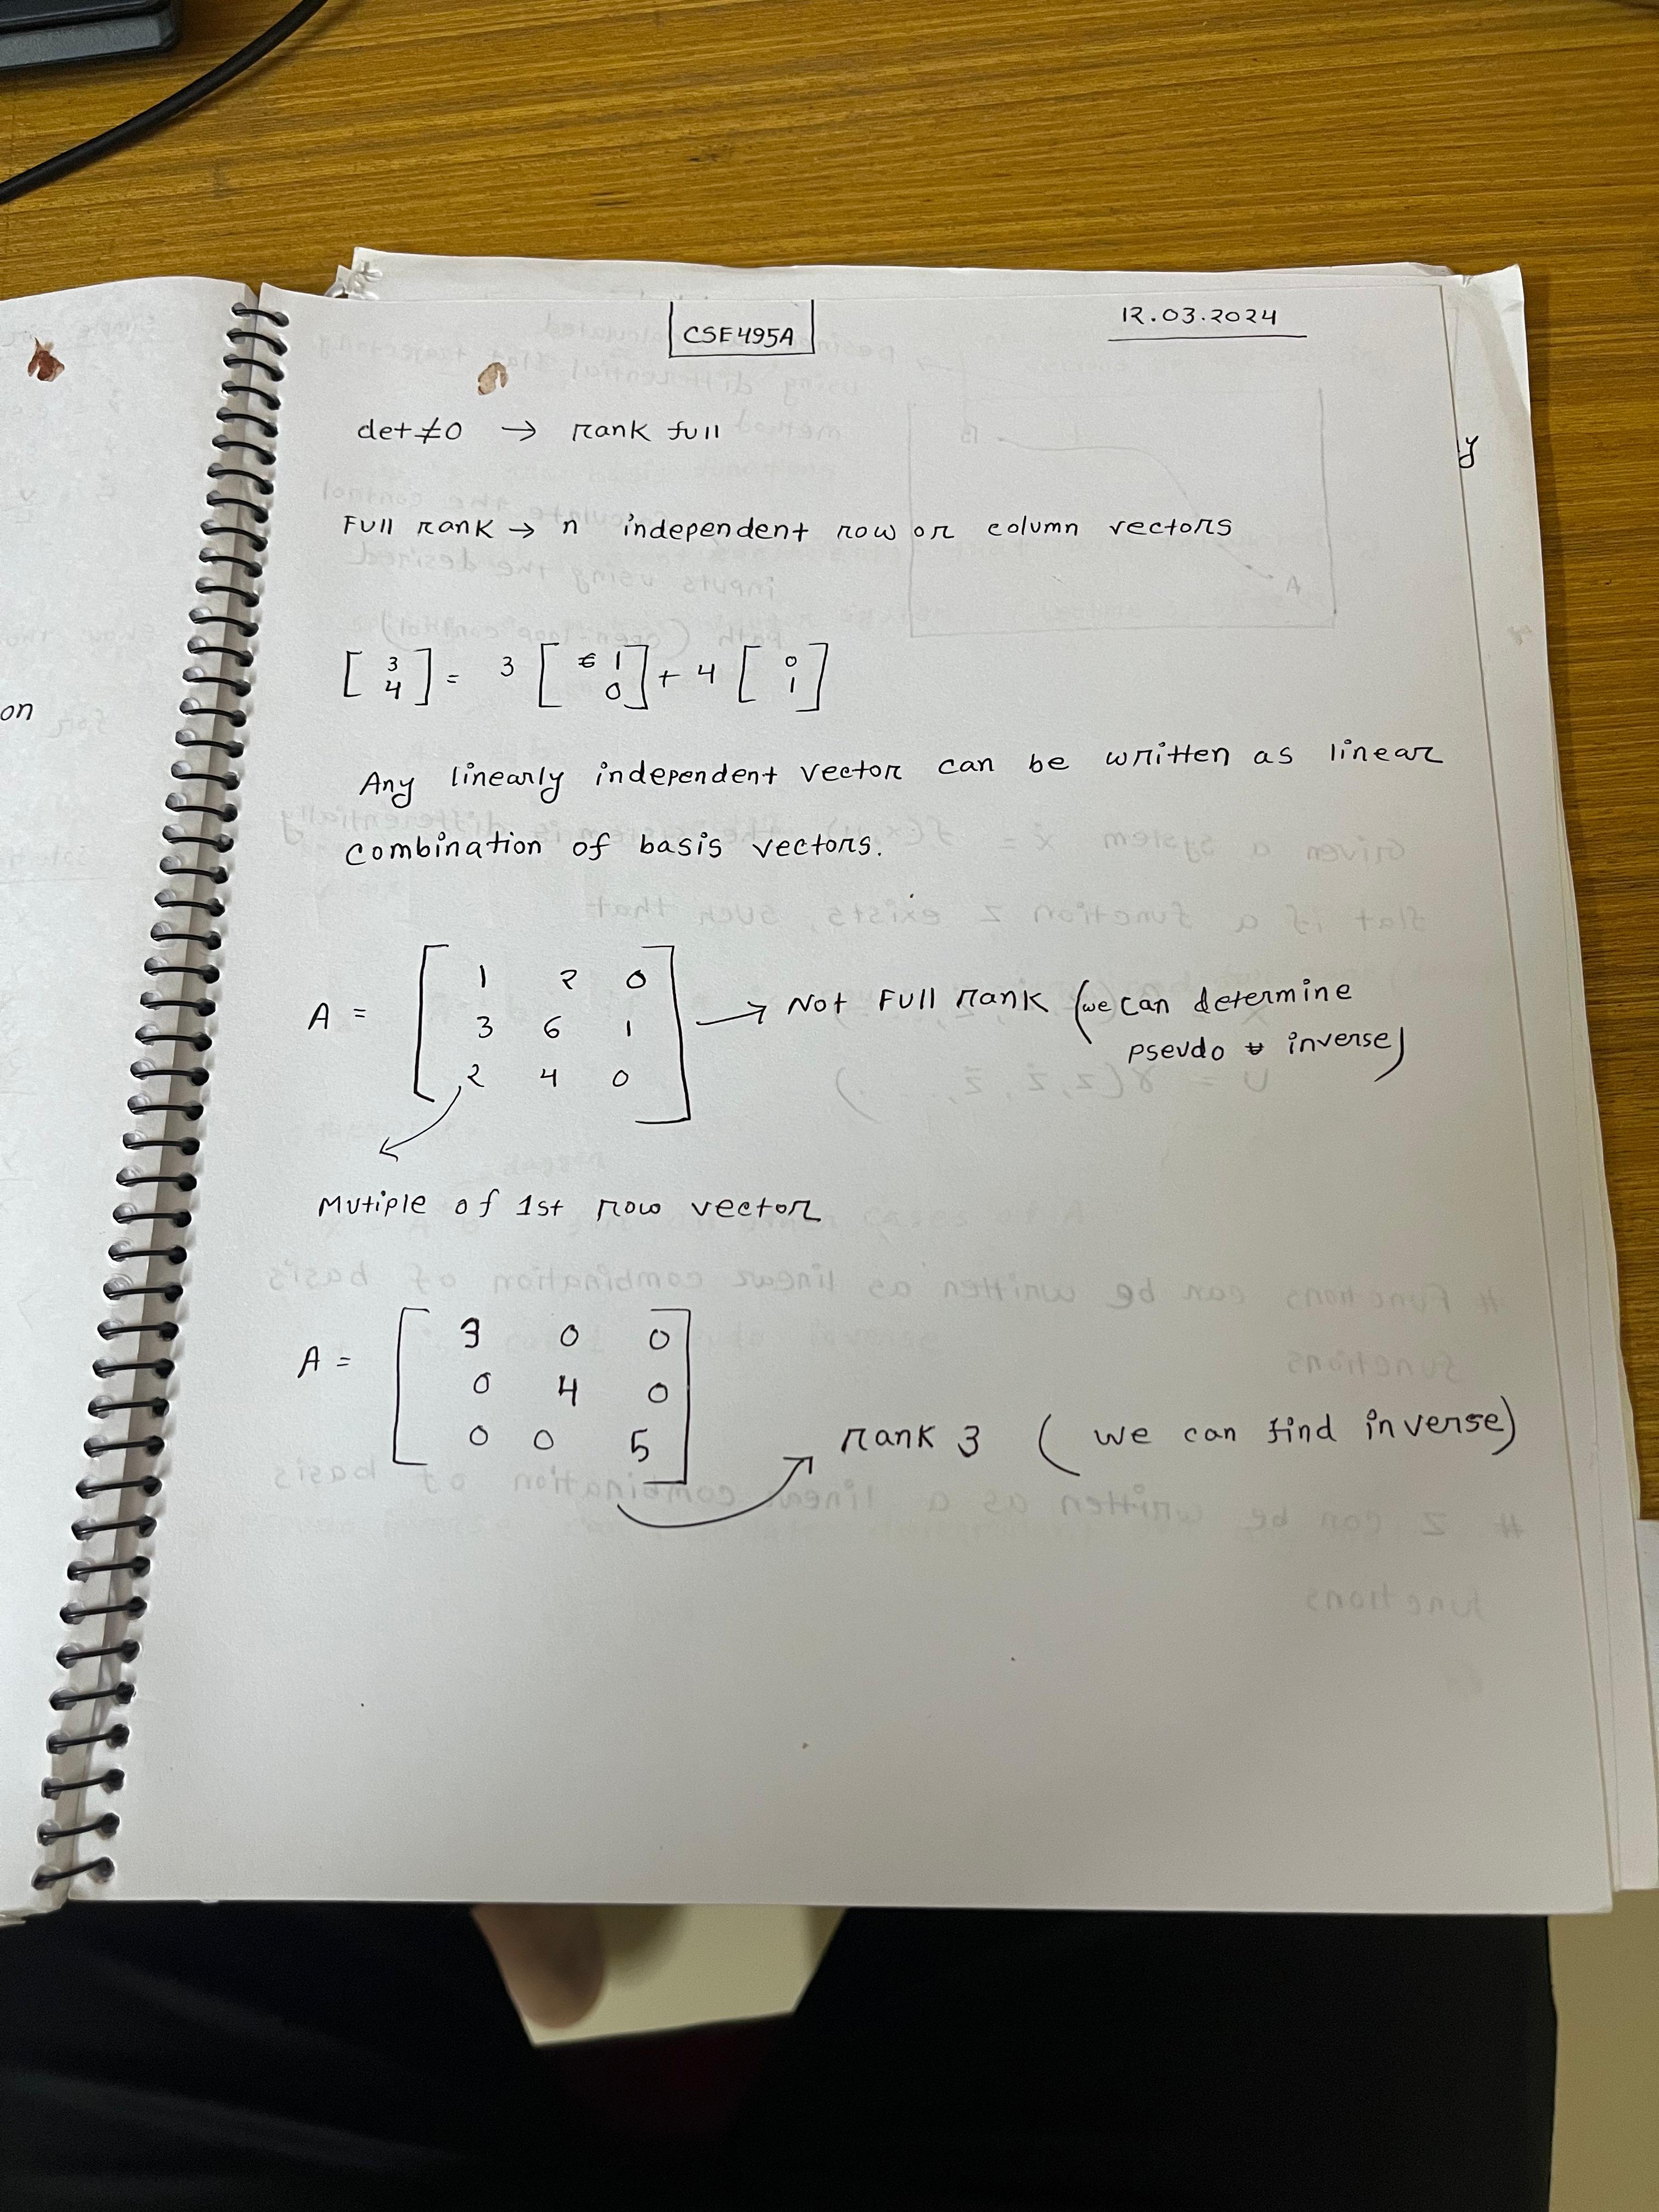 CSE495A
12.03.2024
det≠0 → rank full
y
Full rank → n independent row or column vectors
[3 4] = 3 [1 0] + 4 [0 1]
on
Any linearly independent vector can be written as linear
combination of basis vectors.
A = [1 2 0
3 6 1
2 4 0] → Not Full rank (we can determine
psevdo inverse)
Mutiple of 1st row vector
A = [3 0 0
0 4 0
0 0 5]
rank 3 (we can find inverse)